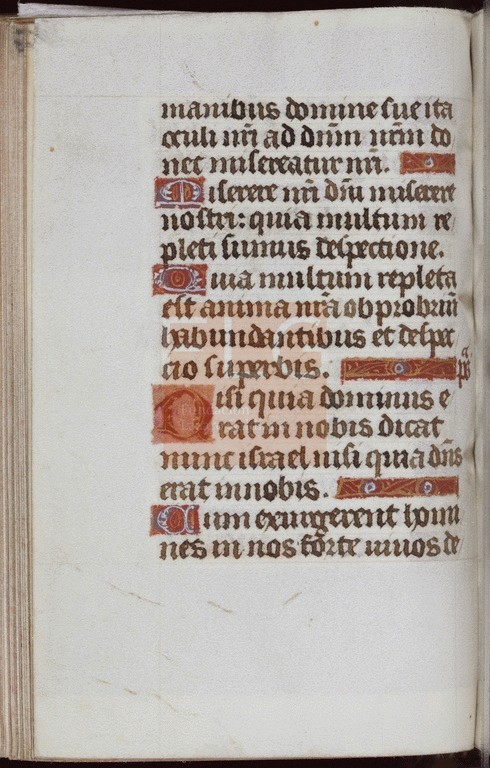 manibus domine sue ita
oculi nr̄i ad dn̄m nr̄m do
nec misereatur nr̄i.
Miserere nr̄i dn̄e miserere
nostri: quia multum re
pleti sumus despectione.
Quia multum repleta
est anima nr̄a obprobriū
habundantibus et despec
cio superbis. ps̄
Nisi quia dominus e
rat in nobis dicat
nunc israel nisi quia dn̄s
erat in nobis.
Cum exurgerent homi
nes in nos forte uiuos de